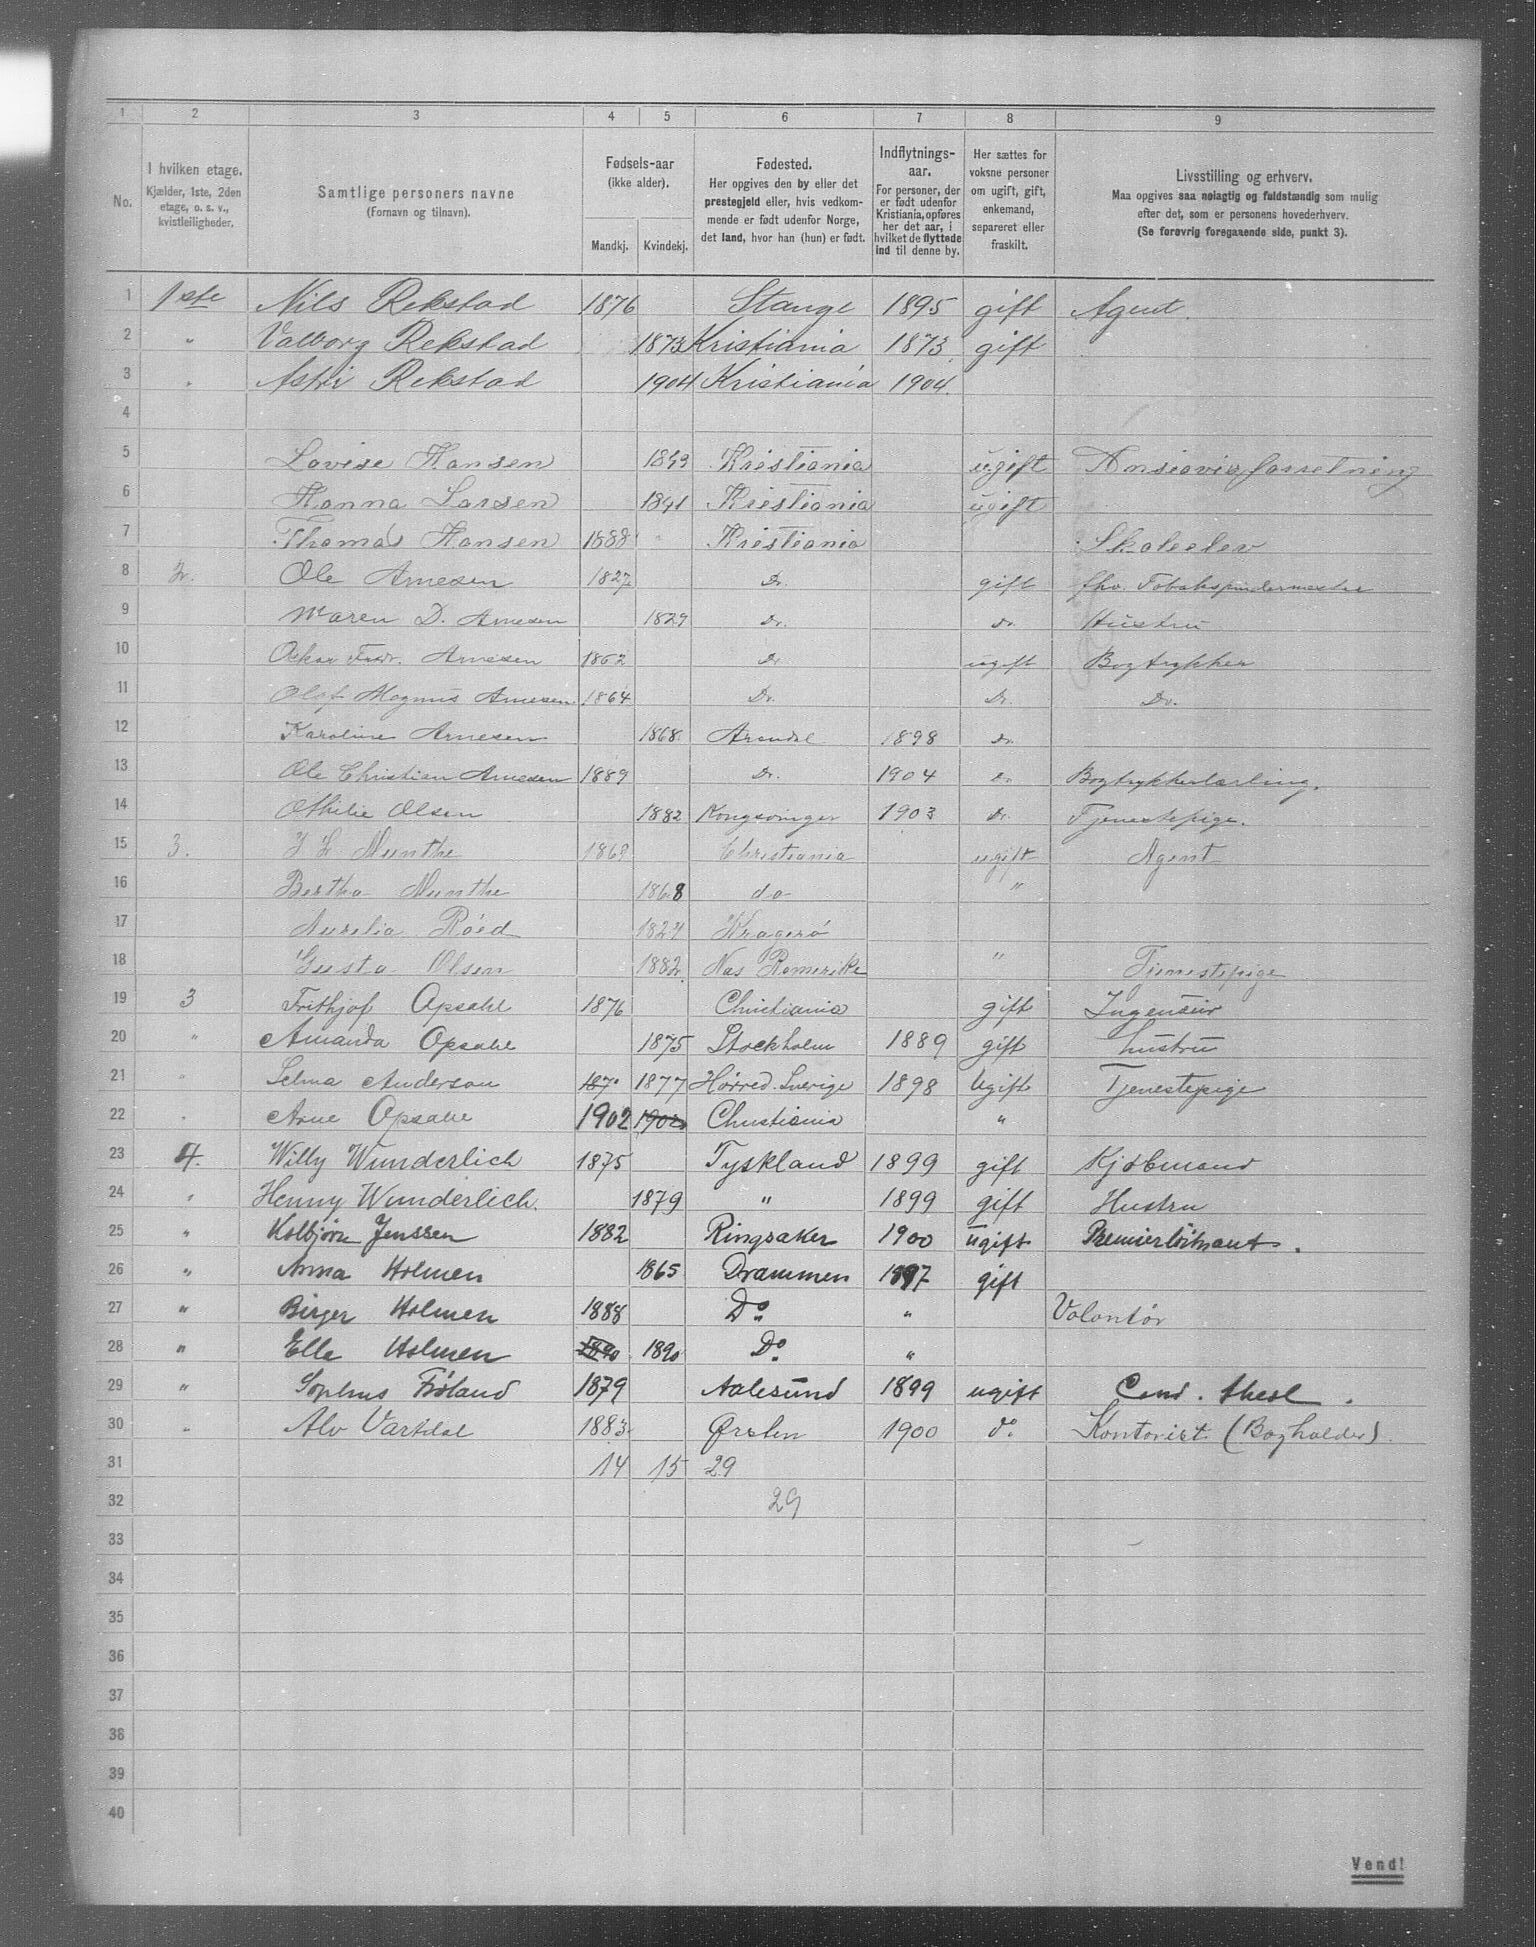 1 2 3 4 5 6 7 8 9
No.
I hvilken etage.
Kjælder, 1ste, 2den
etage, o. s. v.,
kvistleiligheder.
Samtlige personers navne
(Fornavn og tilnavn).
Fødsels-aar
(ikke alder).
Mandkj. Kvindekj.
Fødested.
Her opgives den by eller det
prestegjeld eller, hvis vedkom-
mende er født udenfor Norge,
det land, hvor han (hun) er født.
Indflytnings-
aar.
For personer, der
er født udenfor
Kristiania, opføres
her det aar, i
hvilket de flyttede
ind til denne by.
Her sættes for
voksne personer
om ugift, gift,
enkemand,
separeret eller
fraskilt.
Livsstilling og erhverv.
Maa opgives saa nøiagtig og fuldstændig som mulig
efter det, som er personens hovederhverv.
(Se forøvrig foregaaende side, punkt 3).
1 1ste Nils Rekstad 1876 Stange 1895 gift Agent.
2 " Valborg Rekstad 1873 Kristiania 1873 gift
3 " Astri Rekstad 1904 Kristiania 1904.
4
5 Lovise Hansen 1849 Kristiania ugift
6 Hanna Larsen 1891 Kristiania ugift
7 Thomas Hansen 1888 Kristiania Skoleelev
8 2. Ole Arnesen 1827 Do. gift fhv. Tobakspindermester
9 Maren D. Arnesen 1829 Do. do. Hustru
10 Oskar Fredr. Arnesen 1862 Do ugift Bogtrykker
11 Olaf Magnus Arnesen 1864 Do. Do. Do.
12 Karoline Arnesen 1868 Arendal 1898 do.
13 Ole Christian Arnesen 1889 Do. 1904 do Bogtrykkerlærling.
14 Othilie Olsen 1882 Kongsvinger 1903 do. Tjenestepige.
15 3. Munthe 1869 Christiania ugift Agent
16 Bertha Munthe 1868 do "
17 Aurelia Röed Kragerø
18 Gusta Olsen 1882 Nes Romerike " Tjenestepige
19 3 Frithjof Opsahl 1876 Christiania gift Ingeniør
20 " Amanda Opsahl 1875 Stockholm 1889 gift hustru
21 " Selma Anderson 187 1877 Hørred Sverige 1898 Ugift Tjenestepige
22 " Arne Opsahl 1902 1902 Christiania "
23 4. Willy Wunderlich 1875 Tyskland 1899 gift Kjøbmand
24 " Henny Wunderlich. 1879 " 1899 gift Hustru
25 " Kolbjørn Jenssen 1882 Ringsaker 1900 ugift Premierløitnant.
26 " Anna Holmen 1865 Drammen 1897 gift
27 " Birger Holmen 1888 Do " Volontør
28 " Ella Holmen 1890 1890 Do "
29 " Sophus Frøland 1879 Aalesund 1899 ugift Cand. theol.
30 " Alv Vartdal 1883 Ørsten 1900 do. Kontorist (Bogholder).
31 14 15 29
32 29
33
34
35
36
37
38
39
40
Vend!